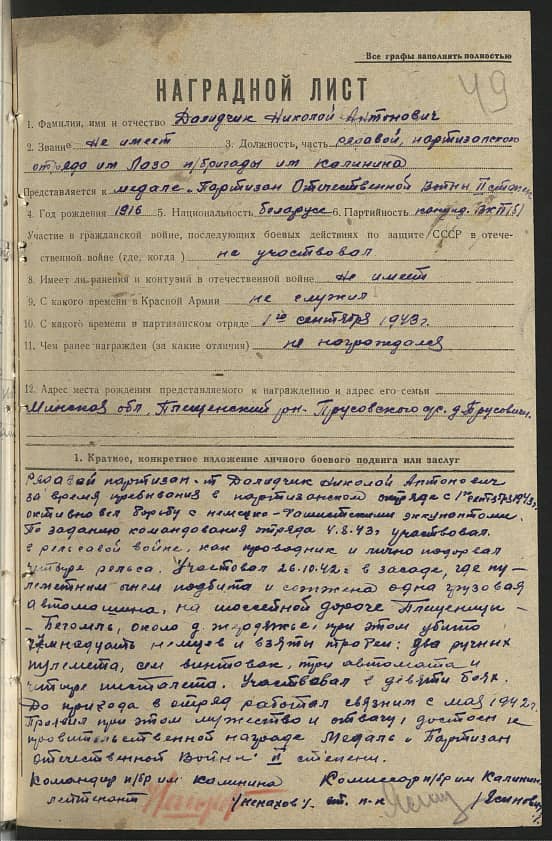 Все графы заполнять полностью
49
НАГРАДНОЙ ЛИСТ
1. Фамилия, имя и отчество Далидчик Николой Антонович
2. Звание не имеет 3. Должность, часть редавой, партизанского
отряда им Лазо п/бригады им Калинина
Представляется к медале „Партизан Отечественной Войны II степени
4. Год рождения 1916 5. Национальность беларусс 6. Партийность канд. ВКП(б)
Участие в гражданской войне, последующих боевых действиях по защите СССР в отече-
ственной войне (где, когда) не участвовал
8. Имеет ли ранения и контузии в отечественной войне не имеет
9. С какого времени в Красной Армии не служил
10. С какого времени в партизанском отряде 1го сентября 1943г.
11. Чем ранее награжден (за какие отличия) не награждался
12. Адрес места рождения представляемого к награждению и адрес его семьи
Минская обл, Плещенский рн. Прусовского с/с. д. Прусовичи
1. Краткое, конкретное изложение личного боевого подвига или заслуг
Редавой партизан т Далидчик Николой Антонович
за время пребывания в партизанском отряде с 1го сентября 1943г
октивно вел борьбу с немецко-фашистскими
По заданию командования отряда 4.8.43г участвовал
в рельсавой войне, как проводник и лично подорвал
четыре рельса. Участвовал 26.10.42г в засаде, где пу-
леметным огнем подбита и сожжена одна грузовая
автомашина, на шоссейной дороге Плещеницы-
- Бегомль, около д. при этом убито
немцев и взяты трофеи: два ручных
пулемета, сем винтовок, три автомата и
четыре писталета. Участвовал в девяти боях.
До прихода в отряд работал связним с мая 1942г.
Проявил при этом мужество и отвагу, достоен к
провительственной награде Медаль „Партизан
Отечественной Войны II степени.
Командир п/бр им Калинина Комиссар п/бр им Калинин.
лейтенант /Менахов/ ст. п-к /Ясинович/